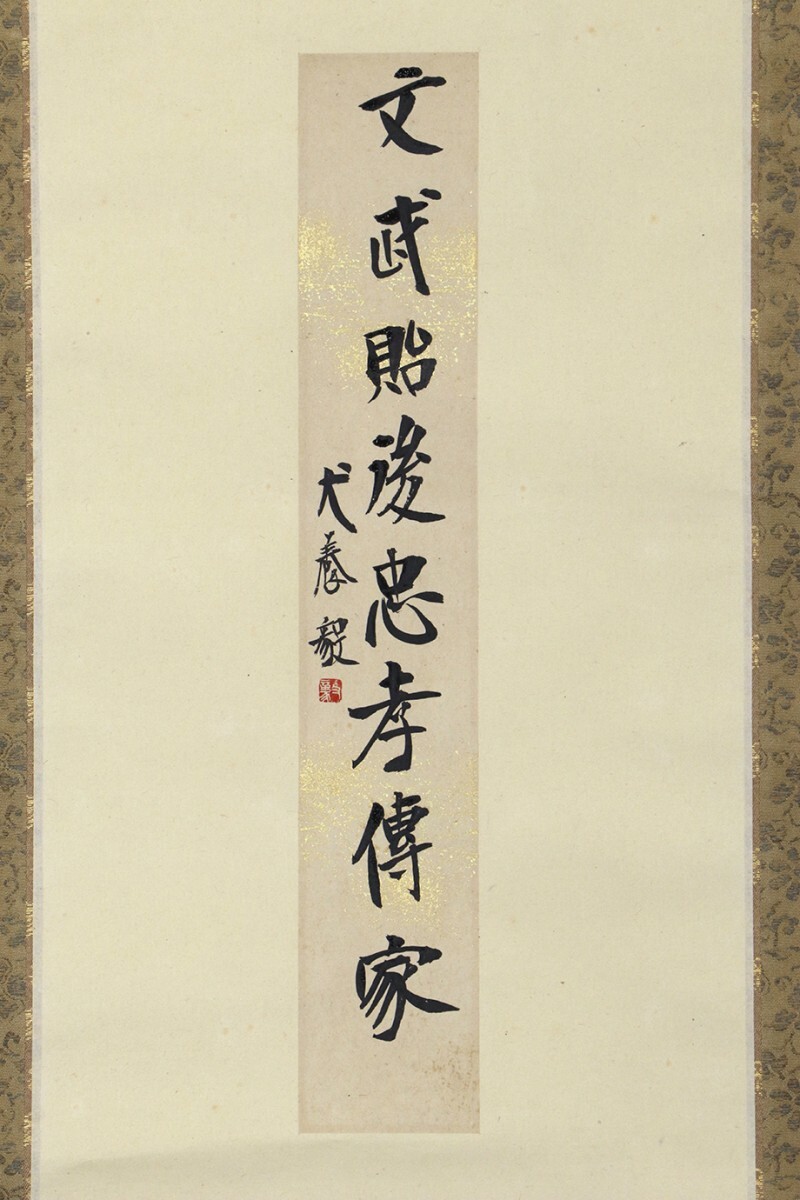 文武貽後忠孝傳家
犬養毅